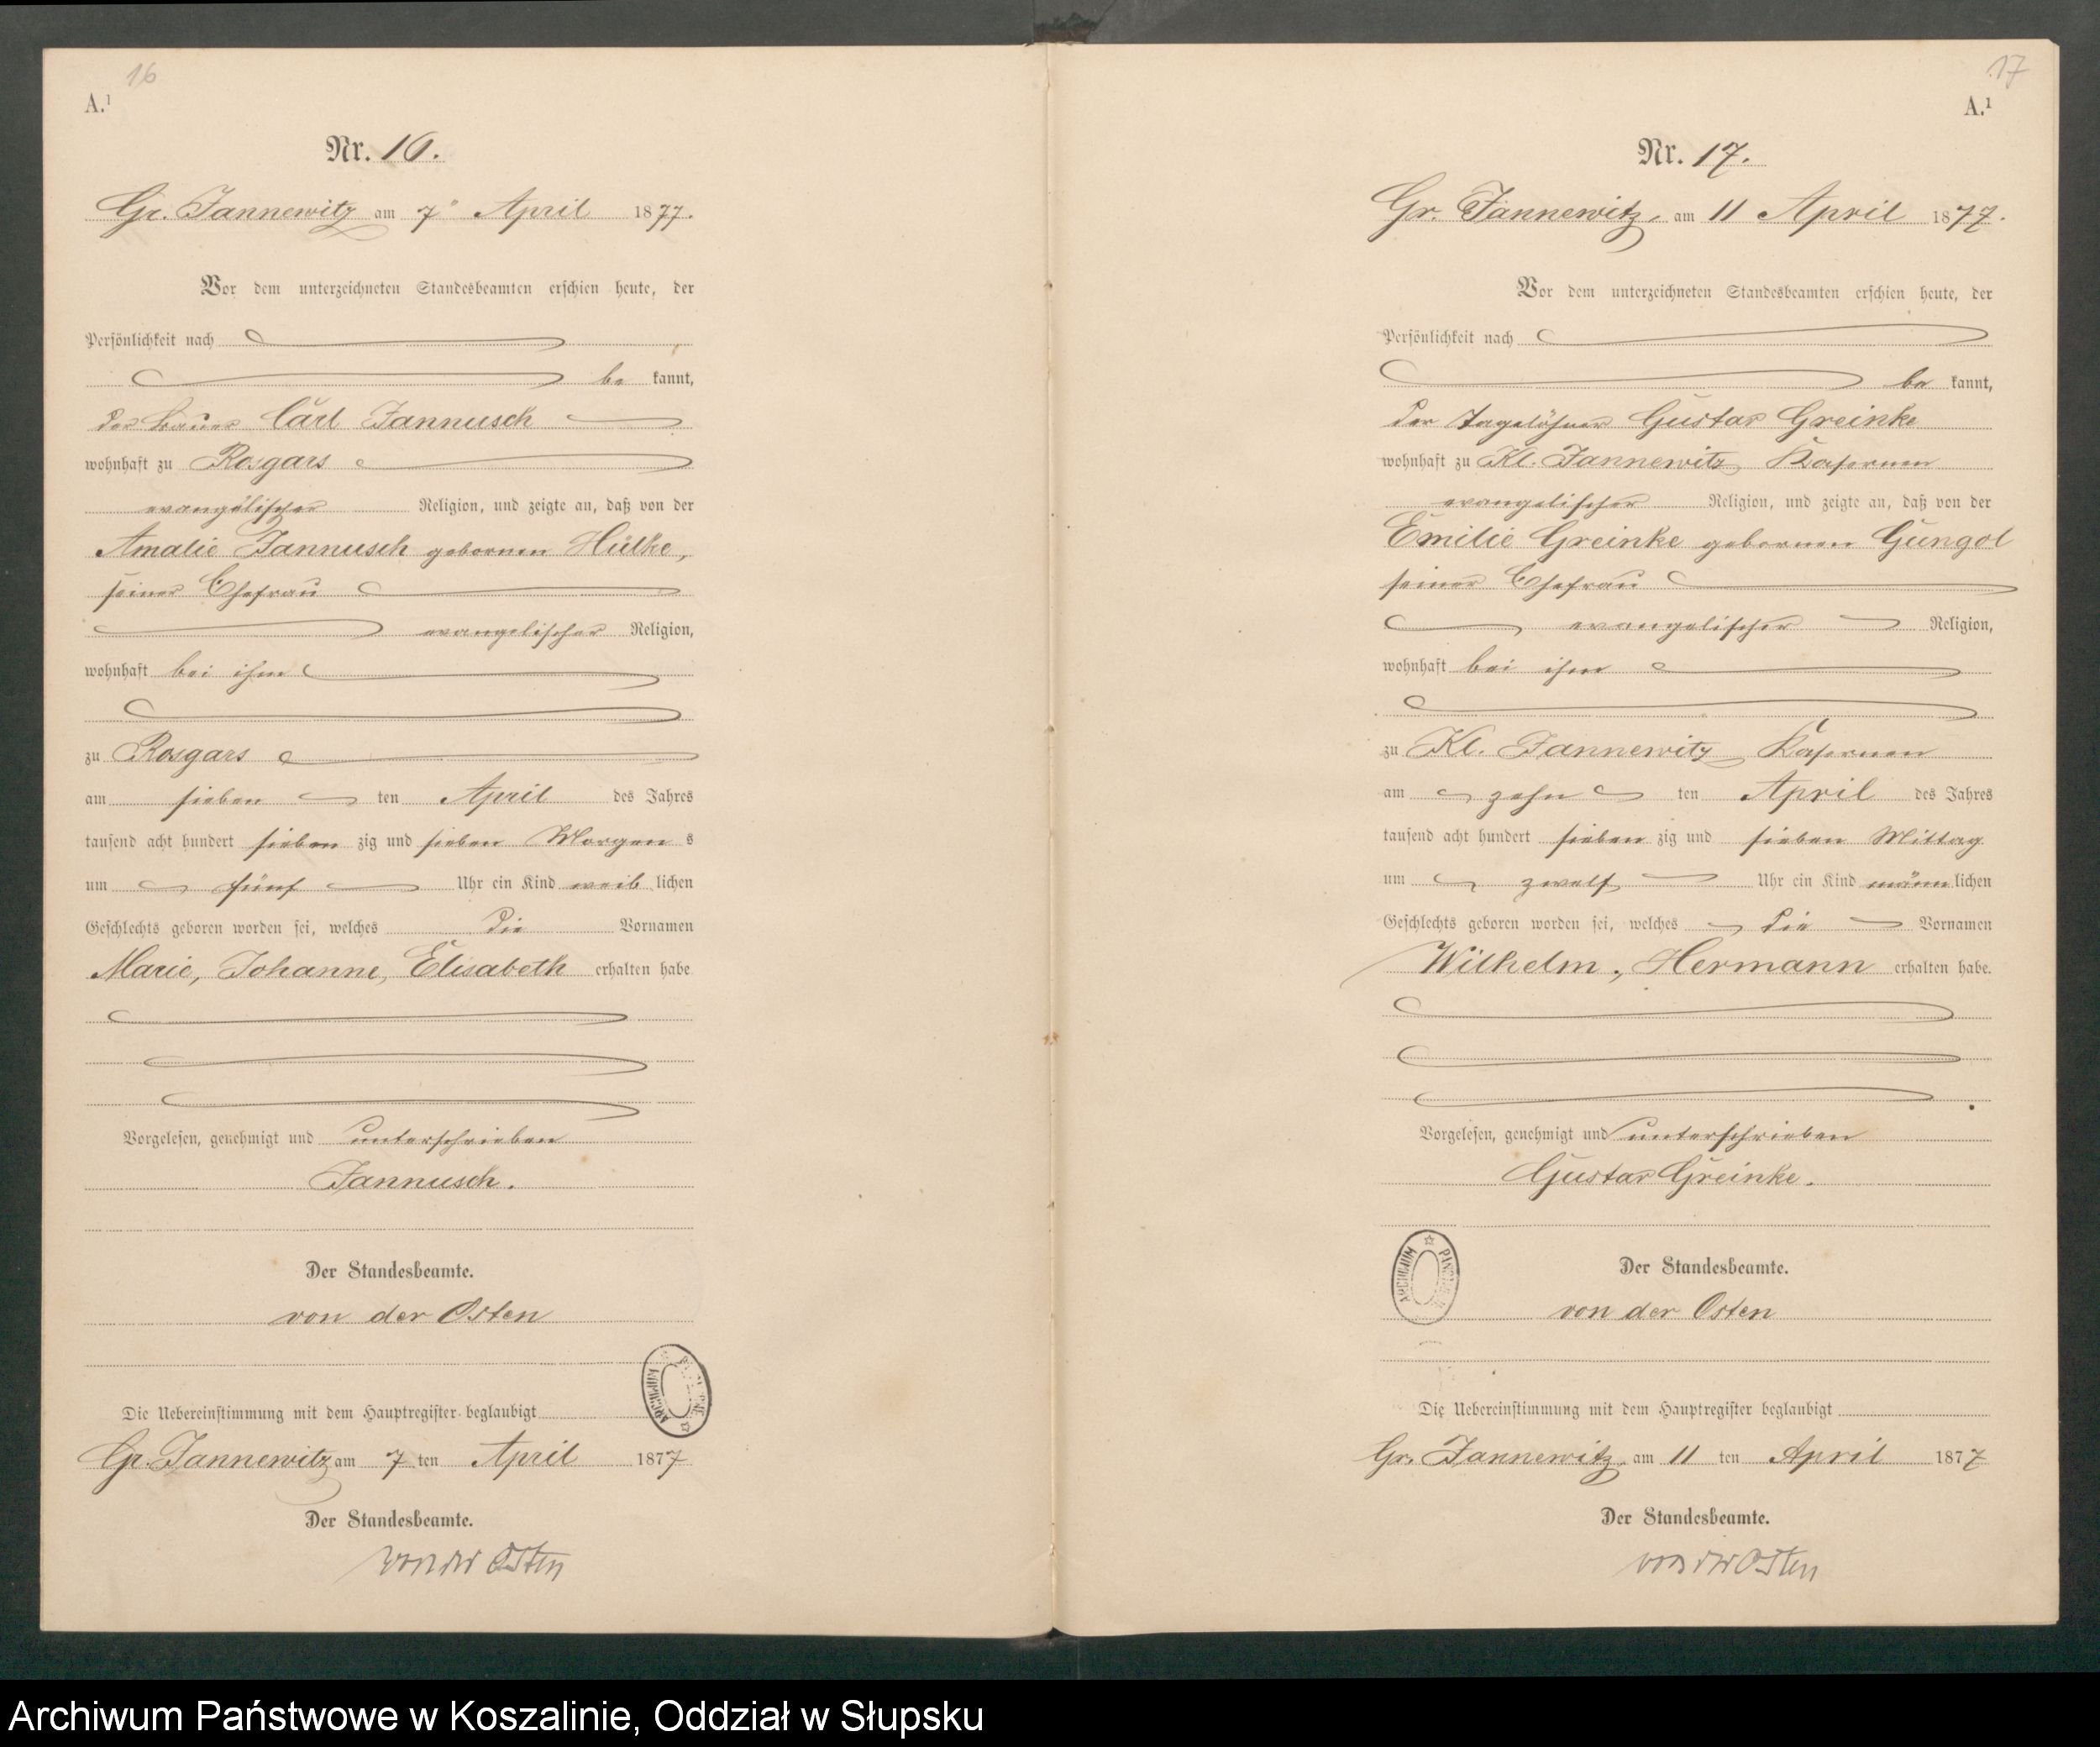 16
A.¹
Nr. 16.
Gr. Jannewitz am 7" April 1877.
Vor dem unterzeichneten Standesbeamten erschien heute, der
Persönlichkeit nach
be kannt,
der Bauer Carl Jannusch
wohnhaft zu Rosgars
evangelischer Religion, und zeigte an, daß von der
Amalie Jannusch gebornen Hülke,
seiner Ehefrau
evangelischer Religion,
wohnhaft bei ihm
zu Rosgars
am sieben ten April des Jahres
tausend acht hundert sieben zig und sieben Morgen s
um fünf Uhr ein Kind weib lichen
Geschlechts geboren worden sei, welches die Vornamen
Marie, Johanne, Elisabeth erhalten habe
Vorgelesen, genehmigt und unterschrieben
Jannusch.
Der Standesbeamte.
von der Osten
Die Uebereinstimmung mit dem Hauptregister beglaubigt
Gr. Jannewitz am 7 ten April 1877
Der Standesbeamte.
von der Osten
17
A.¹
Nr. 17.
Gr. Jannewitz, am 11 April 1877.
Vor dem unterzeichneten Standesbeamten erschien heute, der
Persönlichkeit nach
be kannt,
der Tagelöhner Gustav Greinke
wohnhaft zu Kl. Jannewitz Kasernen
evangelischer Religion, und zeigte an, daß von der
Emilie Greinke gebornen Gungol
seiner Ehefrau
evangelischer Religion,
wohnhaft bei ihm
zu Kl. Jannewitz Kasernen
am zehn ten April des Jahres
tausend acht hundert sieben zig und sieben Mittag
um zwölf Uhr ein Kind männ lichen
Geschlechts geboren worden sei, welches die Vornamen
Wilhelm, Hermann erhalten habe.
Vorgelesen, genehmigt und unterschrieben
Gustav Greinke.
Der Standesbeamte.
von der Osten
Die Uebereinstimmung mit dem Hauptregister beglaubigt
Gr. Jannewitz, am 11 ten April 1877
Der Standesbeamte.
von der Osten
Archiwum Państwowe w Koszalinie, Oddział w Słupsku